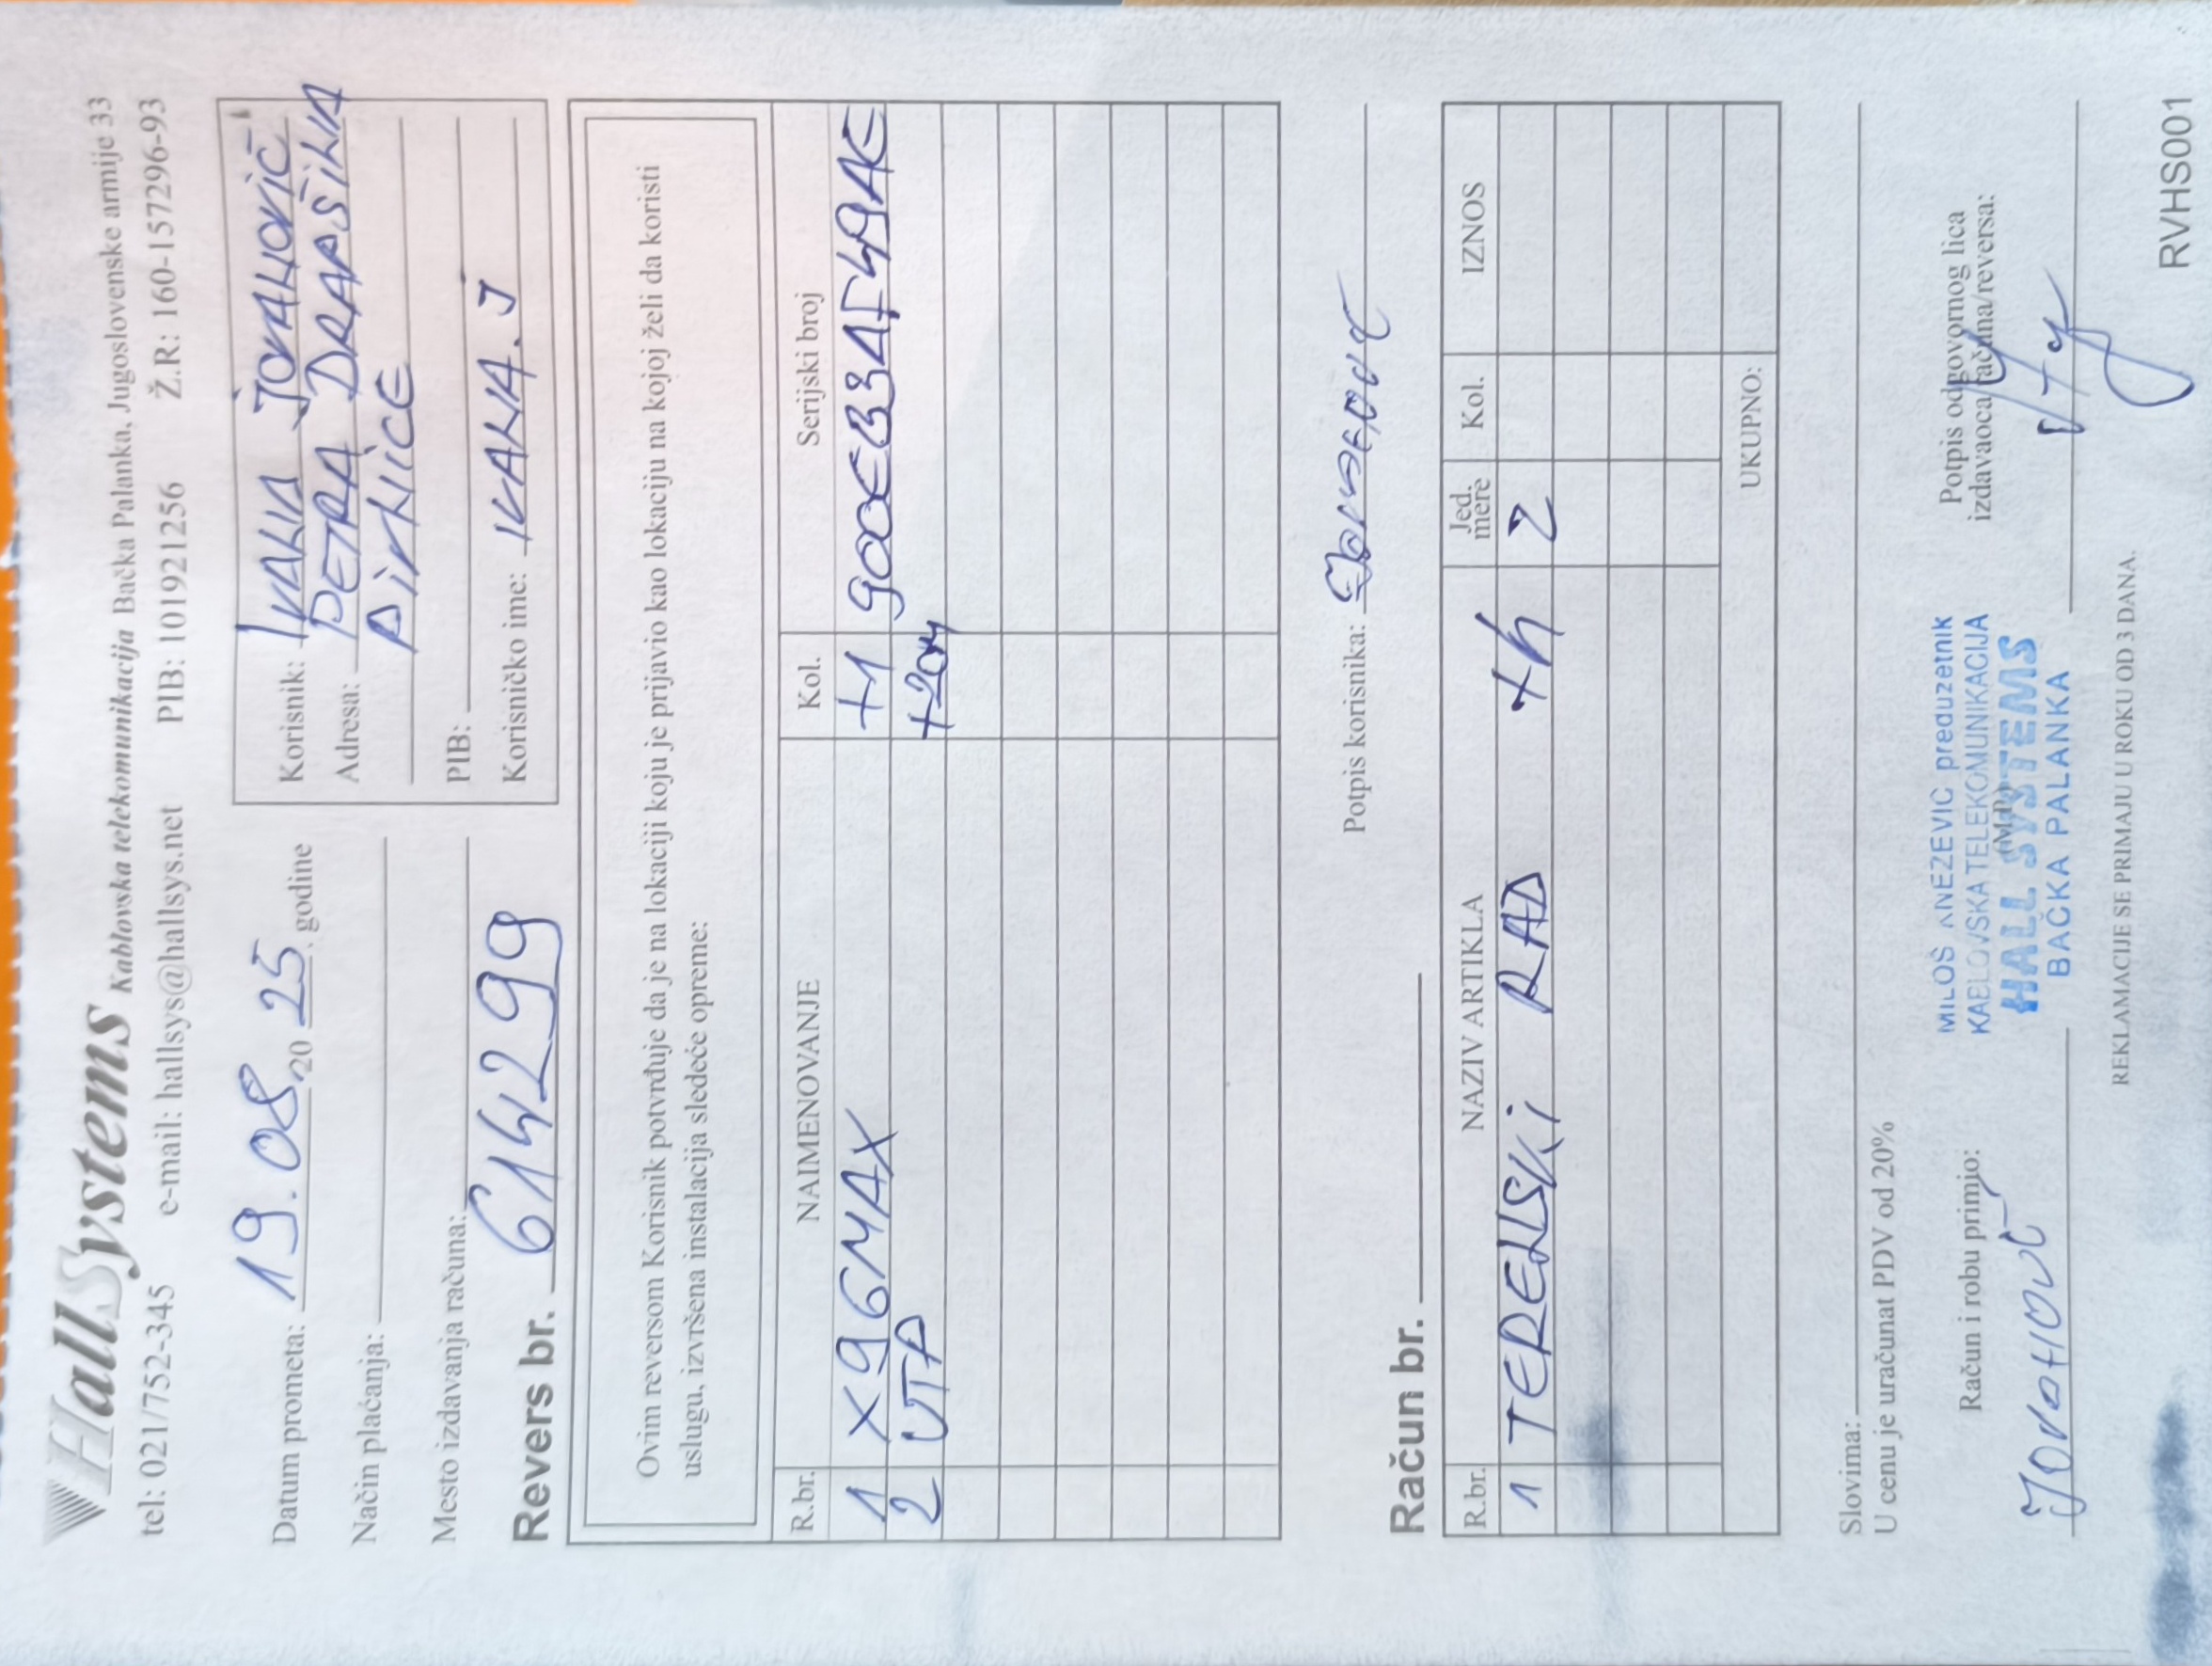 HallSystems Kablovska telekomunikacija Bačka Palanka, Jugoslovenske armije 33
tel: 021/752-345 e-mail: hallsys@hallsys.net PIB: 101921256 Ž.R: 160-157296-93
Datum prometa: 19.08.2025. godine
Način plaćanja:
Mesto izdavanja računa:
Revers br. 614299
Korisnik: IVANA JOVANOVIĆ
Adresa: PETRA DRAPŠINA
PIVNICE
PIB:
Korisničko ime: IVANA.J
Ovim reversom Korisnik potvrđuje da je na lokaciji koju je prijavio kao lokaciju na kojoj želi da koristi
uslugu, izvršena instalacija sledeće opreme:
R.br. NAIMENOVANJE Kol. Serijski broj
1 X96MAX +1 900EB3AF49AE
2 UTP +20m
Potpis korisnika:
Račun br.
R.br. NAZIV ARTIKLA Jed. mere Kol. IZNOS
1 TERENSKI RAD +h 2
UKUPNO:
Slovima:
U cenu je uračunat PDV od 20%
Račun i robu primio:
(M.P.)
Potpis odgovornog lica
izdavaoca računa/reversa:
MILOŠ KNEŽEVIĆ preduzetnik
KABLOVSKA TELEKOMUNIKACIJA
HALL SYSTEMS
BAČKA PALANKA
REKLAMACIJE SE PRIMAJU U ROKU OD 3 DANA.
RVHS001